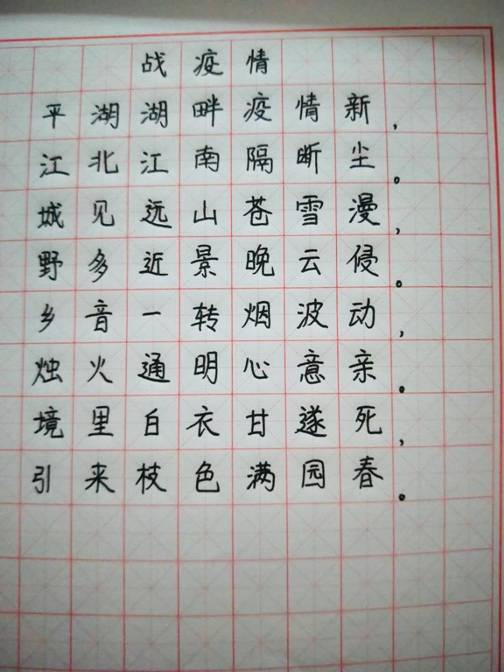 战疫情
平湖湖畔疫情新，
江北江南隔断尘。
城见远山苍雪漫，
野多近景晚云侵。
乡音一转烟波动，
烛火通明心意亲。
境里白衣甘遂死，
引来枝色满园春。